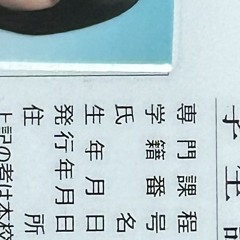 学生証
専門課程
学籍番号
氏名
生年月日
発行年月日
住所
上記の者は本校